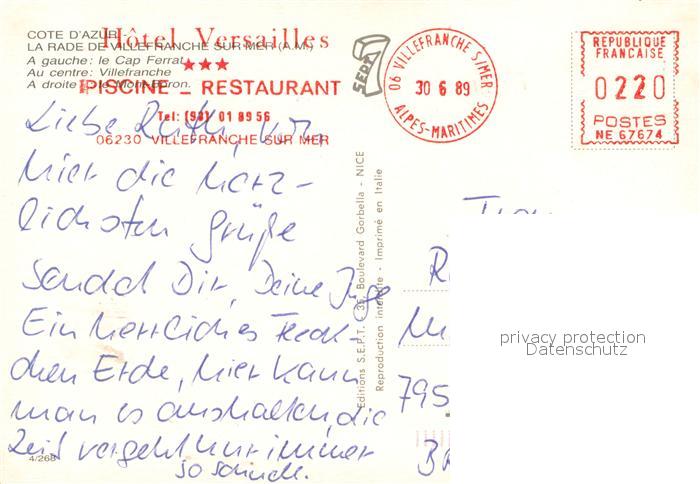 COTE D'AZUR
LA RADE DE VILLEFRANCHE SUR MER (A.M.)
A gauche: le Cap Ferrat
Au centre: Villefranche
A droite: le Mont-Boron.
Hôtel Versailles
★★★
PISCINE _ RESTAURANT
Tel: (93) 01 89 56
06230 VILLEFRANCHE SUR MER
SEPT
06 VILLEFRANCHE S/MER
30 6 89
ALPES-MARITIMES
REPUBLIQUE
FRANCAISE
0220
POSTES
NE 67674
Liebe Ruth, von
hier die herz-
lichsten Grüße
sendet Dir, Deine Inge
Ein herrliches Fleck-
chen Erde, hier kann
man es aushalten, die
Zeit vergeht nur immer
so schnell.
4/268
Editions S.E.P.T. - 35, Boulevard Gorbella - NICE
Reproduction interdite - Imprimé en Italie
795
privacy protection
Datenschutz